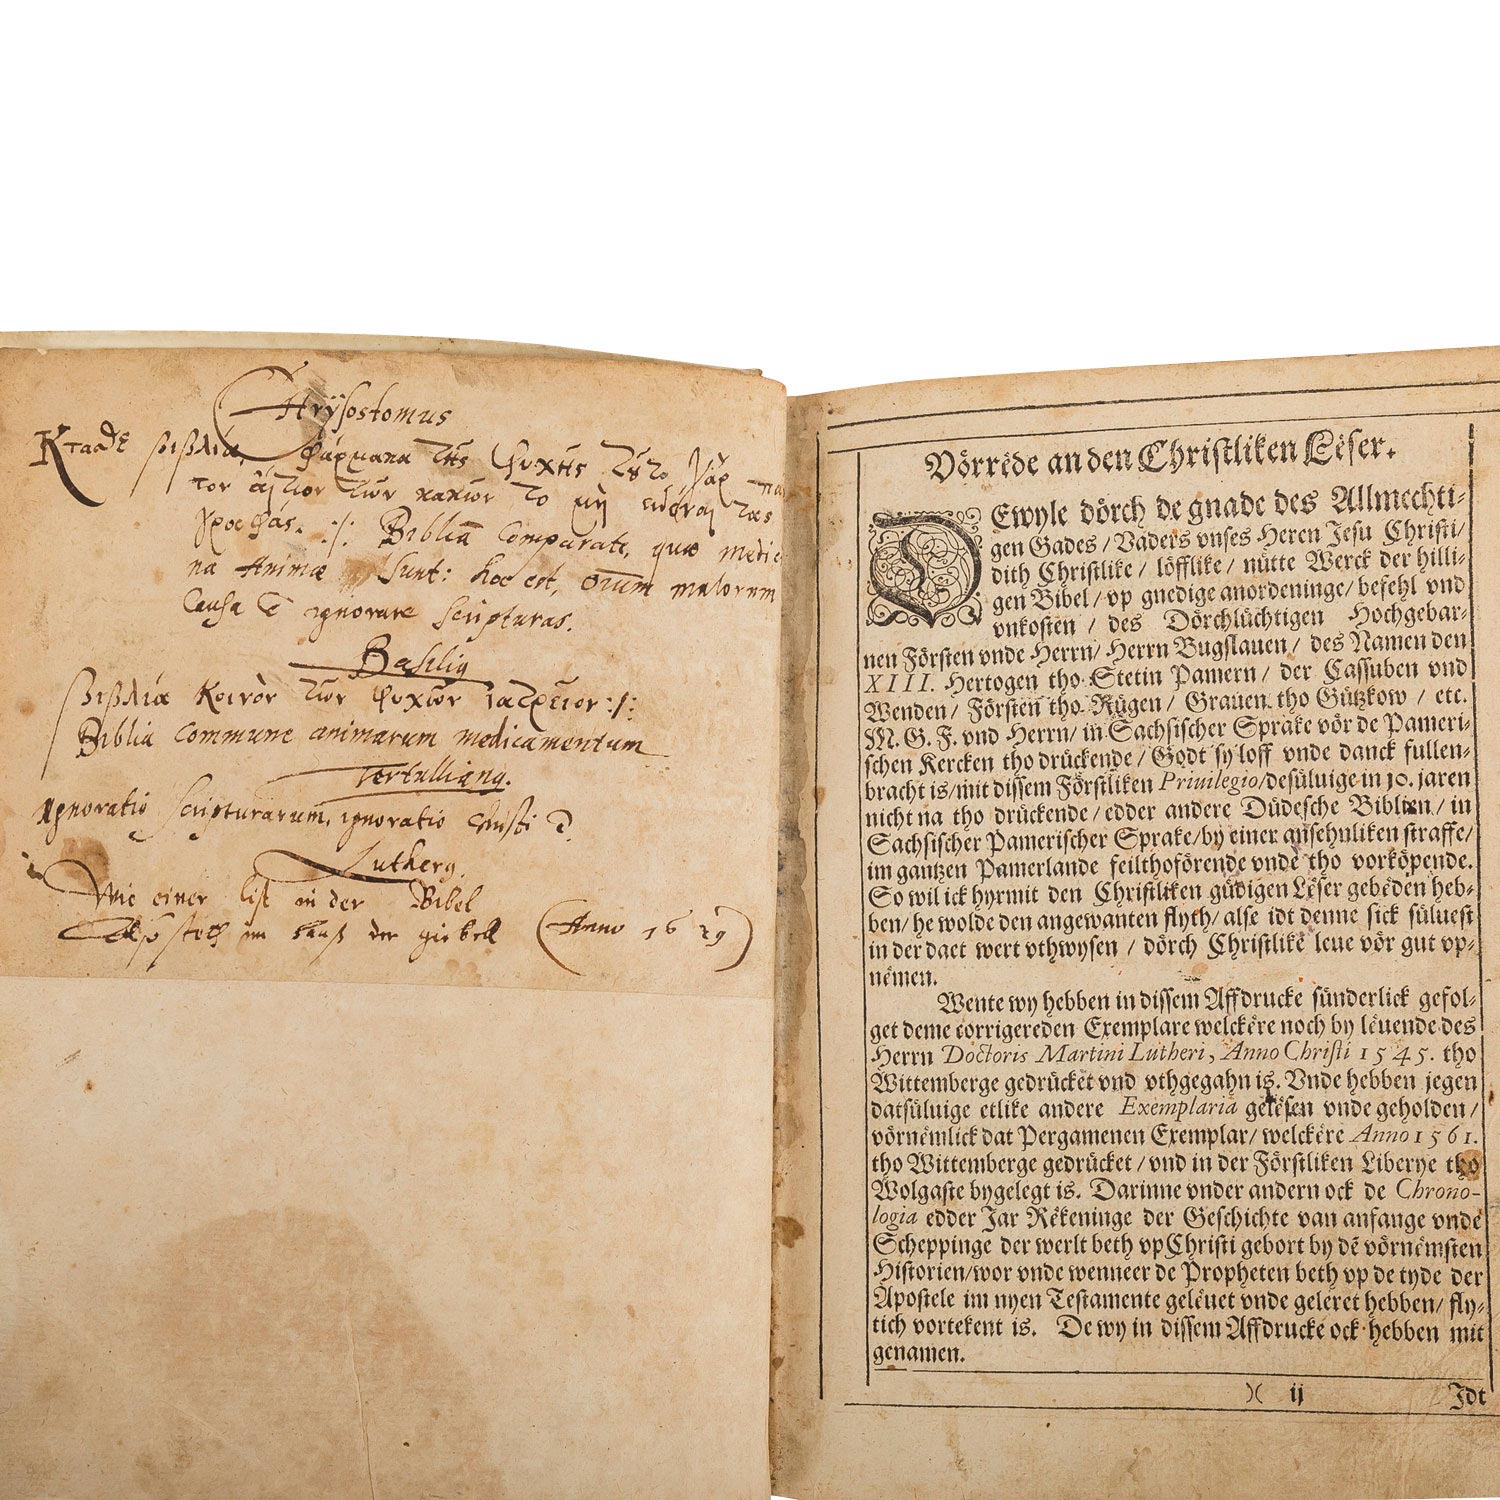 Chrÿsostomus
Κτᾶσθε βιβλία, φάρμακα τῆς ψυχῆς τοῦτο γὰρ
των αἴτιον των κακων το μη ειδέναι τας
γραφάς. :/: Biblia Comparate, quæ medici
na Animæ sunt: hoc est, om̄um malorum
Causa ē ignorare scripturas.
Basiliq
βιβλία κοινὸν των ψυχων ιατρειον :/:
Biblia commune animarum medicamentum
Tertullianq.
Ignoratio scripturarum, ignoratio Christi ē.
Lutherq.
Wie einer list in der Bibel
im hauß der giebell (Anno 1629)
Vörrêde an den Christliken Lêser.
DEwyle dörch de gnade des Allmechti-
gen Gades / Vaders vnses Heren Jesu Christi /
dith Christlike / löfflike / nütte Werck der hilli-
gen Bibel / vp gnedige anordeninge / befehl vnd
vnkosten / des Dörchlüchtigen Hochgebar-
nen Försten vnde Herrn / Herrn Bugslauen / des Namen den
XIII. Hertogen tho Stetin Pamern / der Cassuben vnd
Wenden / Försten tho Rügen / Grauen tho Gützkow / etc.
M. G. F. vnd Herrn / in Sachsischer Sprake vör de Pameri-
schen Kercken tho drückende / Godt sy loff vnde danck fullen-
bracht is / mit dissem Förstliken Priuilegio / desüluige in 10. jaren
nicht na tho drückende / edder andere Düdesche Biblien / in
Sachsischer Pamerischer Sprake / by einer ansehnliken straffe /
im gantzen Pamerlande feilthoförende vnde tho vorköpende.
So wil ick hyrmit den Christliken güdigen Lêser gebêden heb-
ben / he wolde den angewanten flyth / alse idt denne sick süluest
in der daet wert vthwysen / dörch Christlike leue vör gut vp-
nêmen.
Wente wy hebben in dissem Affdrucke sünderlick gefol-
get deme corrigereden Exemplare welckêre noch by lêuende des
Herrn Doctoris Martini Lutheri, Anno Christi 1545. tho
Wittemberge gedrücket vnd vthgegahn is. Vnde hebben jegen
datsüluige etlike andere Exemplaria gelêsen vnde geholden /
vörnêmlick dat Pergamenen Exemplar / welckêre Anno 1561.
tho Wittemberge gedrücket / vnd in der Förstliken Liberye tho
Wolgaste bygelegt is. Darinne vnder andern ock de Chrono-
logia edder Jar Rêkeninge der Geschichte van anfange vnde
Scheppinge der werlt beth vp Christi gebort by dē vörnêmsten
Historien / wor vnde wenneer de Propheten beth vp de tyde der
Apostele im nyen Testamente gelêuet vnde geleret hebben / fly-
tich vortekent is. De wy in dissem Affdrucke ock hebben mit
genamen.
)( ij Idt